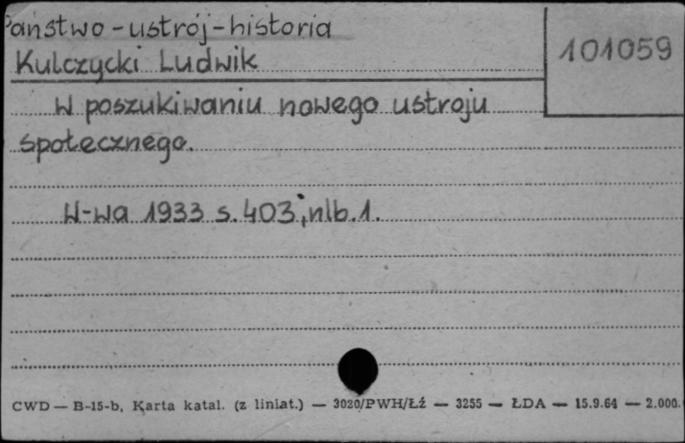 Państwo-ustrój-historia
101059
Kulczycki Ludwik
W poszukiwaniu nowego ustroju
społecznego.
W-wa 1933 s. 403, nlb. 1.
CWD — B-15-b, Karta katal. (z liniat.) — 3020/PWH/Łź — 3255 — ŁDA — 15.9.64 — 2.000.